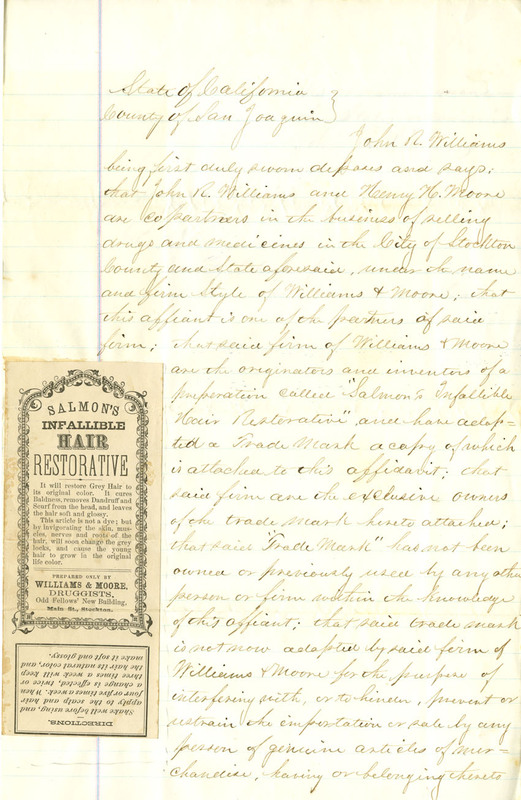 State of California }
County of San Joaquin }
John R. Williams
being first duly sworn deposes and says;
that John R. Williams and Henry H. Moore
are copartners in the business of selling
drugs and medicines in the City of Stockton
County and State aforesaid, under the name
and firm Style of Williams & Moore; that
this affiant is one of the partners of said
firm; that said firm of Williams & Moore
are the originators and inventors of a
preparation called "Salmon's Infallible
Hair Restorative" and have adop-
ted a Trade Mark a copy of which
is attached to this affidavit; that
said firm are the exclusive owners
of the trade mark hereto attached;
that said "Trade Mark" has not been
owned or previously used by any other
person or firm within the knowledge
of this affiant; that said trade mark
is not now adopted by said firm of
Williams & Moore for the purpose of
interfering with, or to hinder, prevent or
restrain the importation or sale by any
person of genuine articles of mer-
chandise, having or belonging thereto
SALMON'S
INFALLIBLE
HAIR
RESTORATIVE
It will restore Grey Hair to
its original color. It cures
Baldness, removes Dandruff and
Scurf from the head, and leaves
the hair soft and glossy.
This article is not a dye; but
by invigorating the skin, mus-
cles, nerves and roots of the
hair, will soon change the grey
locks, and cause the young
hair to grow in the original
life color.
PREPARED ONLY BY
WILLIAMS & MOORE,
DRUGGISTS,
Odd Fellows' New Building,
Main St., Stockton.
DIRECTIONS.
Shake well before using, and
apply to the scalp and hair
four or five times a week. When
a change is effected, twice or
three times a week will keep
the hair its natural color, and
make it soft and glossy.